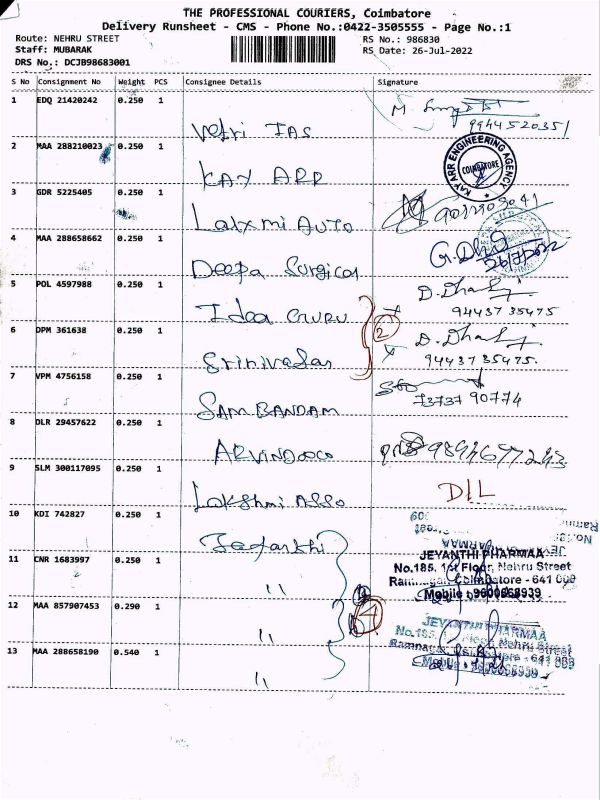 THE PROFESSIONAL COURIERS, Coimbatore
Delivery Runsheet - CMS - Phone No.:0422-3505555 - Page No.:1
Route: NEHRU STREET
RS No.: 986830
Staff: MUBARAK
RS Date: 26-Jul-2022
DRS No.: DCJB98683001
S No Consignment No Weight PCS Consignee Details Signature
1 EDQ 21420242 0.250 1
Vetri IAS
9944520351
2 MAA 288210023 0.250 1
KAY ARR
KAY ARR ENGINEERING AGENCY
COIMBATORE
3 GDR 5225405 0.250 1
Laxmi AUTO
4 MAA 288658662 0.250 1
Deepa Surgical
5 POL 4597988 0.250 1
Idea GURU
9443735475
2
6 DPM 361638 0.250 1
Srinivasan
9443735475.
7 VPM 4756158 0.250 1
SAMBANDAM
73737 90774
8 DLR 29457622 0.250 1
9 SLM 300117095 0.250 1
Lakshmi ASSO
DIL
10 KDI 742827 0.250 1
JEYANTHI PHARMAA
No.185, 1st Floor, Nehru Street
Ramnagar, Coimbatore - 641 009
Mobile : 9600868939
11 CNR 1683997 0.250 1
"
12 MAA 857907453 0.290 1
"
JEYANTHI PHARMAA
No.185, 1st Floor, Nehru Street
Ramnagar, Coimbatore - 641 009
13 MAA 288658190 0.540 1
"